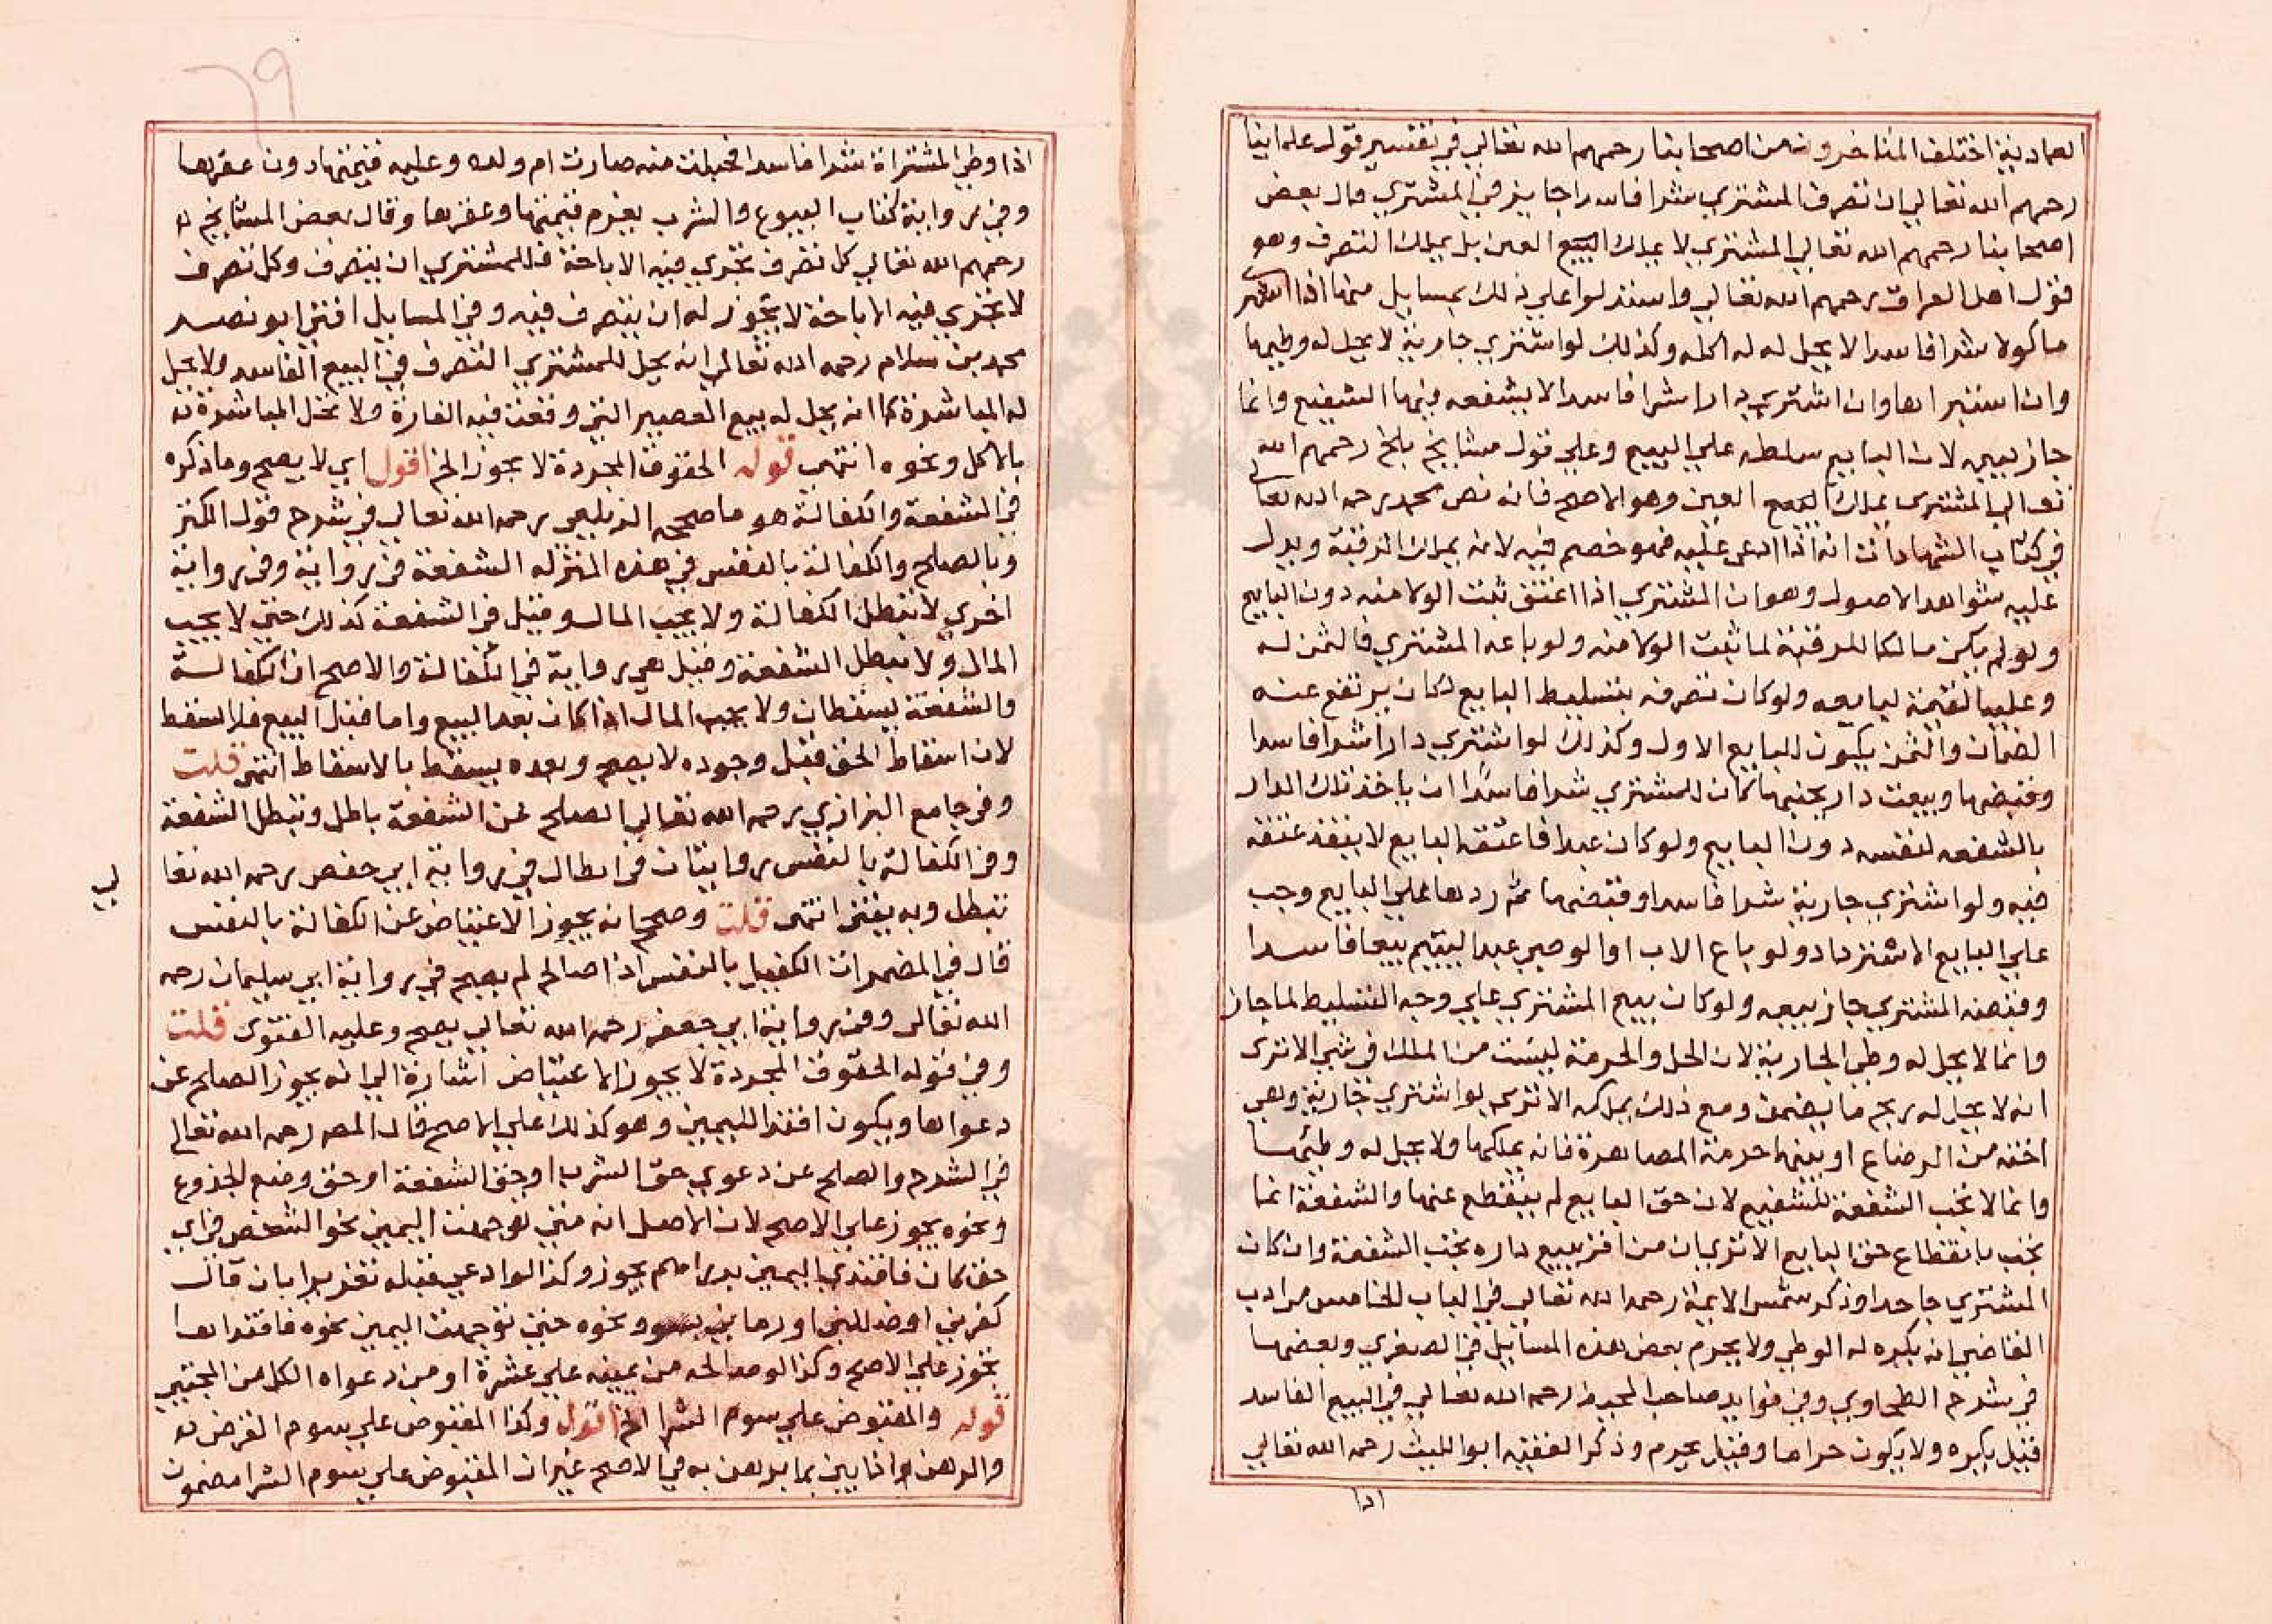 العمادية اختلف المتاخرون من اصحابنا رحمهم الله تعالى في تفسير قول علمائنا
رحمهم الله تعالى ان تصرف المشتري شرا فاسدا جايز في المشتري قال بعض
اصحابنا رحمهم الله تعالى المشتري لا يملك البيع العين بل يملك التصرف وهو
قول اهل العراق رحمهم الله تعالى واستدلوا على ذلك بمسايل منها اذا اشتر
ماكولا شرا فاسدا لا يحل له اكله وكذلك لو اشتري جارية لا يحل له وطيها
وان استبراها وان اشتري دارا شرا فاسدا لا يشفعه فيها الشفيع وانما
جاز بيعه لان البايع سلطه علي البيع وعلي قول مشايخ بلخ رحمهم الله
تعالي المشتري يملك العين وهو الاصح فانه نص محمد رحمه الله تعا
في كتاب الشهادات انه اذا ادعى عليه فهو خصم فيه لانه يملك الرقبة ويدل
عليه شواهد الاصول وهو ان المشتري اذا اعتق ثبت الولا منه دون البايع
ولو لم يكن مالكا للرقبة لما ثبت الولا منه ولو باعه المشتري فالثمن له
وعليه القيمة لبايعه ولو كان تصرفه بتسليط البايع لكان يرتفع عنه
الضمان والثمن يكون للبايع الاول وكذلك لو اشتري دارا شرا فاسدا
وقبضها وبيعت دار بجنبها كان للمشتري شرا فاسدا ان ياخذ تلك الدار
بالشفعه لنفسه دون البايع ولو كان عبدا فاعتقه البايع لا ينفذ عتقه
فيه ولو اشتري جارية شرا فاسدا وقبضها ثم ردها علي البايع وجب
علي البايع الاستبرا ولو باع الاب او الوصي عبد اليتيم بيعا فاسدا
وقبضه المشتري جاز بيعه ولو كان بيع المشتري علي وجه التسليط لما جاز
وانما لا يحل له وطي الجارية لان الحل والحرمة ليست من الملك في شي الا تري
انه لا يحل له ربح ما يضمن ومع ذلك يملكه الا تري لو اشتري جارية وهي
اخته من الرضاع او بينها حرمة المصاهرة فانه يملكها ولا يحل له وطيها
وانما لا تجب الشفعة للشفيع لان حق البايع لم ينقطع عنها والشفعة انما
تجب بانقطاع حق البايع الا تري ان من اقر ببيع داره تجب الشفعة وان كان
المشتري جاحدا وذكر شمس الايمة رحمه الله تعالي في الباب الخامس من ادب
القاضي انه يكره له الوطي ولا يحرم بعض هذه المسايل في الصغري وبعضها
في شرح الطحاوي وفي فوايد صاحب المحيط رحمه الله تعالي في البيع الفاسد
قيل يكره ولا يكون حراما وقيل يحرم وذكر الفقيه ابو الليث رحمه الله تعالي
اذا
٦٩
اذا وطي المشتراة شرا فاسدا فحبلت منه صارت ام ولد وعليه قيمتها دون عقرها
وفي رواية كتاب البيوع والشرب يغرم قيمتها وعقرها وقال بعض المشايخ
رحمهم الله تعالي كل تصرف تجري فيه الاباحة فللمشتري ان يتصرف وكل تصرف
لا تجري فيه الاباحة لا يجوز له ان يتصرف فيه وفي المسايل افتي ابو نصر
محمد بن سلام رحمه الله تعالي انه يحل للمشتري التصرف في البيع الفاسد ولا يحل
له المباشرة كما انه يحل له بيع العصير التي وقعت فيه الفارة ولا تحل المباشرة
بالاكل ونحوه انتهى قوله الحقوق المجردة لا يجوز الخ اقول اي لا يصح وما ذكره
في الشفعة والكفالة هو ما صححه الزيلعي رحمه الله تعالي في شرح قول الكنز
وبالصلح والكفالة بالنفس في هذه المنزله الشفعة في رواية وفي رواية
اخري لا تبطل الكفالة ولا يجب المال وقيل في الشفعة كذلك حتي لا يجب
المال ولا تبطل الشفعة وقيل هي رواية في الكفالة والاصح ان الكفالة
والشفعة يسقطان ولا يجب المال اذا كان بعد البيع واما قبل البيع فلا تسقط
لان اسقاط الحق قبل وجوده لا يصح وبعده يسقط بالاسقاط انتهى قلت
وفي جامع البزازي رحمه الله تعالي الصلح عن الشفعة باطل وتبطل الشفعة
وفي الكفالة بالنفس روايتان في ابطال في رواية ابي حفص رحمه الله تعا
لي
تبطل وبه يفتي انتهى قلت وصحح انه يجوز الاعتياض عن الكفالة بالنفس
قال في المضمرات الكفيل بالنفس اذا صالح لم يصح في رواية ابي سليمان رحمه
الله تعالي وفي رواية ابي جعفر رحمه الله تعالي يصح وعليه الفتوي قلت
وفي قوله الحقوق المجردة لا يجوز الاعتياض اشارة الي انه يجوز الصلح عن
دعواها ويكون افتدا لليمين وهو كذلك علي الاصح قال المص رحمه الله تعالي
في الشرح والصلح عن دعوي حق الشرب او حق الشفعة او حق وضع الجذوع
ونحوه يجوز علي الاصح لان الاصل انه متي توجهت اليمين نحو الشخص في اي
حق كان فافتدي اليمين بدراهم يجوز وكذا لو ادعي قبله تعزيرا بان قال
كفرني او ضللني او رماني بسو ونحوه حتي توجهت اليمين نحوه فافتداها
تجوز علي الاصح وكذا لو صالحه من يمينه علي عشرة او من دعواه الكل من المجتبي
قوله والمقبوض علي سوم الشرا الخ اقول وكذا المقبوض علي سوم القرض
والرهن اذا بين ما يرهن به في الاصح غير ان المقبوض علي سوم الشرا مضمون